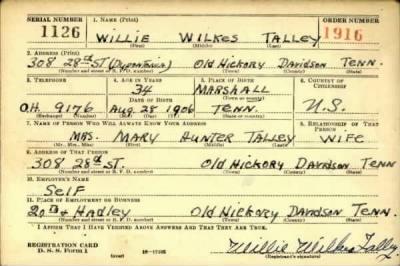 SERIAL NUMBER 1. NAME (Print) ORDER NUMBER
1126 WILLIE WILKES TALLEY 1916
(First) (Middle) (Last)
2. ADDRESS (Print)
308 28th ST (DUPONTONIA) OLD HICKORY DAVIDSON TENN.
(Number and street or R. F. D. number) (Town) (County) (State)
3. TELEPHONE 4. AGE IN YEARS 5. PLACE OF BIRTH 6. COUNTRY OF CITIZENSHIP
34 MARSHALL
DATE OF BIRTH (Town or county)
O.H. 9176 Aug. 28 1906 TENN. U.S.
(Exchange) (Number) (Mo.) (Day) (Yr.) (State or country)
7. NAME OF PERSON WHO WILL ALWAYS KNOW YOUR ADDRESS 8. RELATIONSHIP OF THAT PERSON
MRS. MARY HUNTER TALLEY WIFE
(Mr., Mrs., Miss) (First) (Middle) (Last)
9. ADDRESS OF THAT PERSON
308 28th ST. OLD HICKORY DAVIDSON TENN
(Number and street or R. F. D. number) (Town) (County) (State)
10. EMPLOYER'S NAME
SELF
11. PLACE OF EMPLOYMENT OR BUSINESS
20th & HADLEY OLD HICKORY DAVIDSON TENN.
(Number and street or R. F. D. number) (Town) (County) (State)
I AFFIRM THAT I HAVE VERIFIED ABOVE ANSWERS AND THAT THEY ARE TRUE.
REGISTRATION CARD
D. S. S. Form 1 Willie Wilkes Talley
(Registrant's signature)